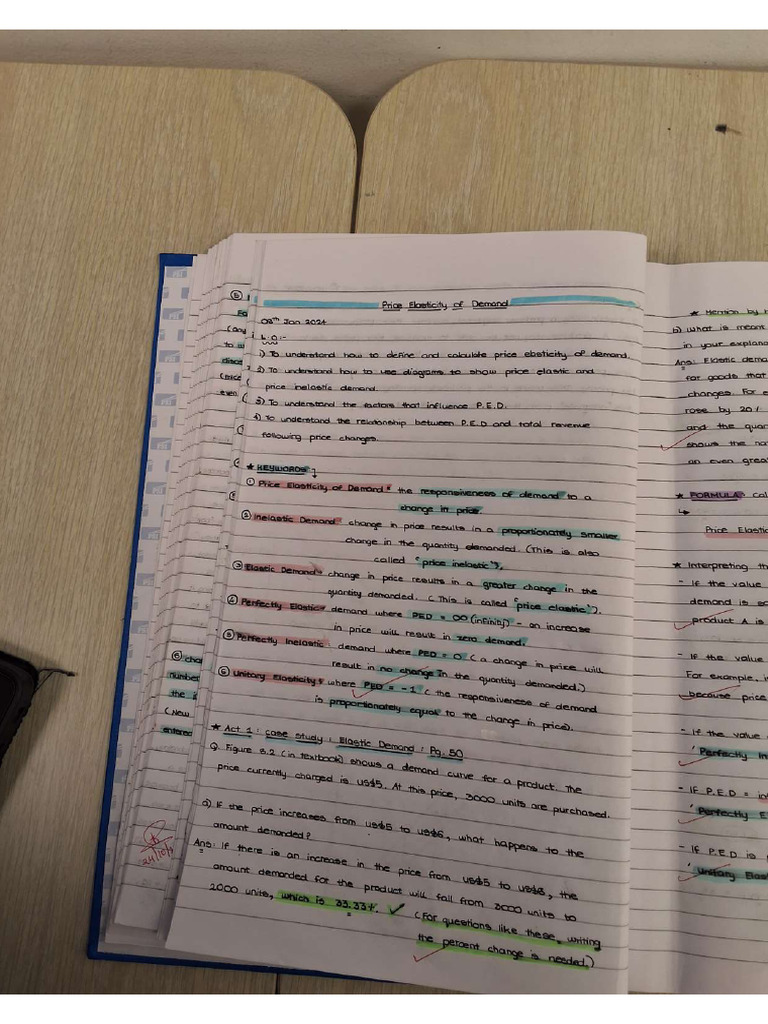 Price Elasticity of Demand
08th Jan 2024
L.O:-
1) To understand how to define and calculate price elasticity of demand.
2) To understand how to use diagrams to show price elastic and
price inelastic demand.
3) To understand the factors that influence P.E.D.
4) To understand the relationship between P.E.D and total revenue
following price changes.
★ KEYWORDS
① Price Elasticity of Demand: the responsiveness of demand to a
change in price
② Inelastic Demand: change in price results in a proportionately smaller
change in the quantity demanded. (This is also
called "price inelastic").
③ Elastic Demand: change in price results in a greater change in the
quantity demanded. (This is called "price elastic").
④ Perfectly Elastic: demand where PED = OO (infinity) - an increase
in price will result in zero demand.
⑤ Perfectly Inelastic: demand where PED = 0 (a change in price will
result in no change in the quantity demanded.)
⑥ Unitary Elasticity: where PED = -1 (the responsiveness of demand
is proportionately equal to the change in price).
★ Act 1: case study: Elastic Demand: Pg: 50
Q. Figure 8.2 (in textbook) shows a demand curve for a product. The
price currently charged is US$5. At this price, 3000 units are purchased.
a) If the price increases from US$5 to US$6, what happens to the
amount demanded?
Ans: If there is an increase in the price from US$5 to US$6, the
amount demanded for the product will fall from 3000 units to
2000 units, which is 33.33%.
(For questions like these, writing
the percent change is needed.)
chan
number
the i
(New
entered
24/10/
★ Mention by
b) What is meant
in your explana
Ans: Elastic dema
for goods that
changes. For e
rose by 20%
and the quan
shows the no
an even great
★ FORMULA: cal
Price Elastic
★ Interpreting th
- If the value
demand is
product A is
- If the value
For example, i
because price
- If the value
'Perfectly In
- IF P.E.D = in
'Perfectly E
- If P.E.D is
'Unitary Elas